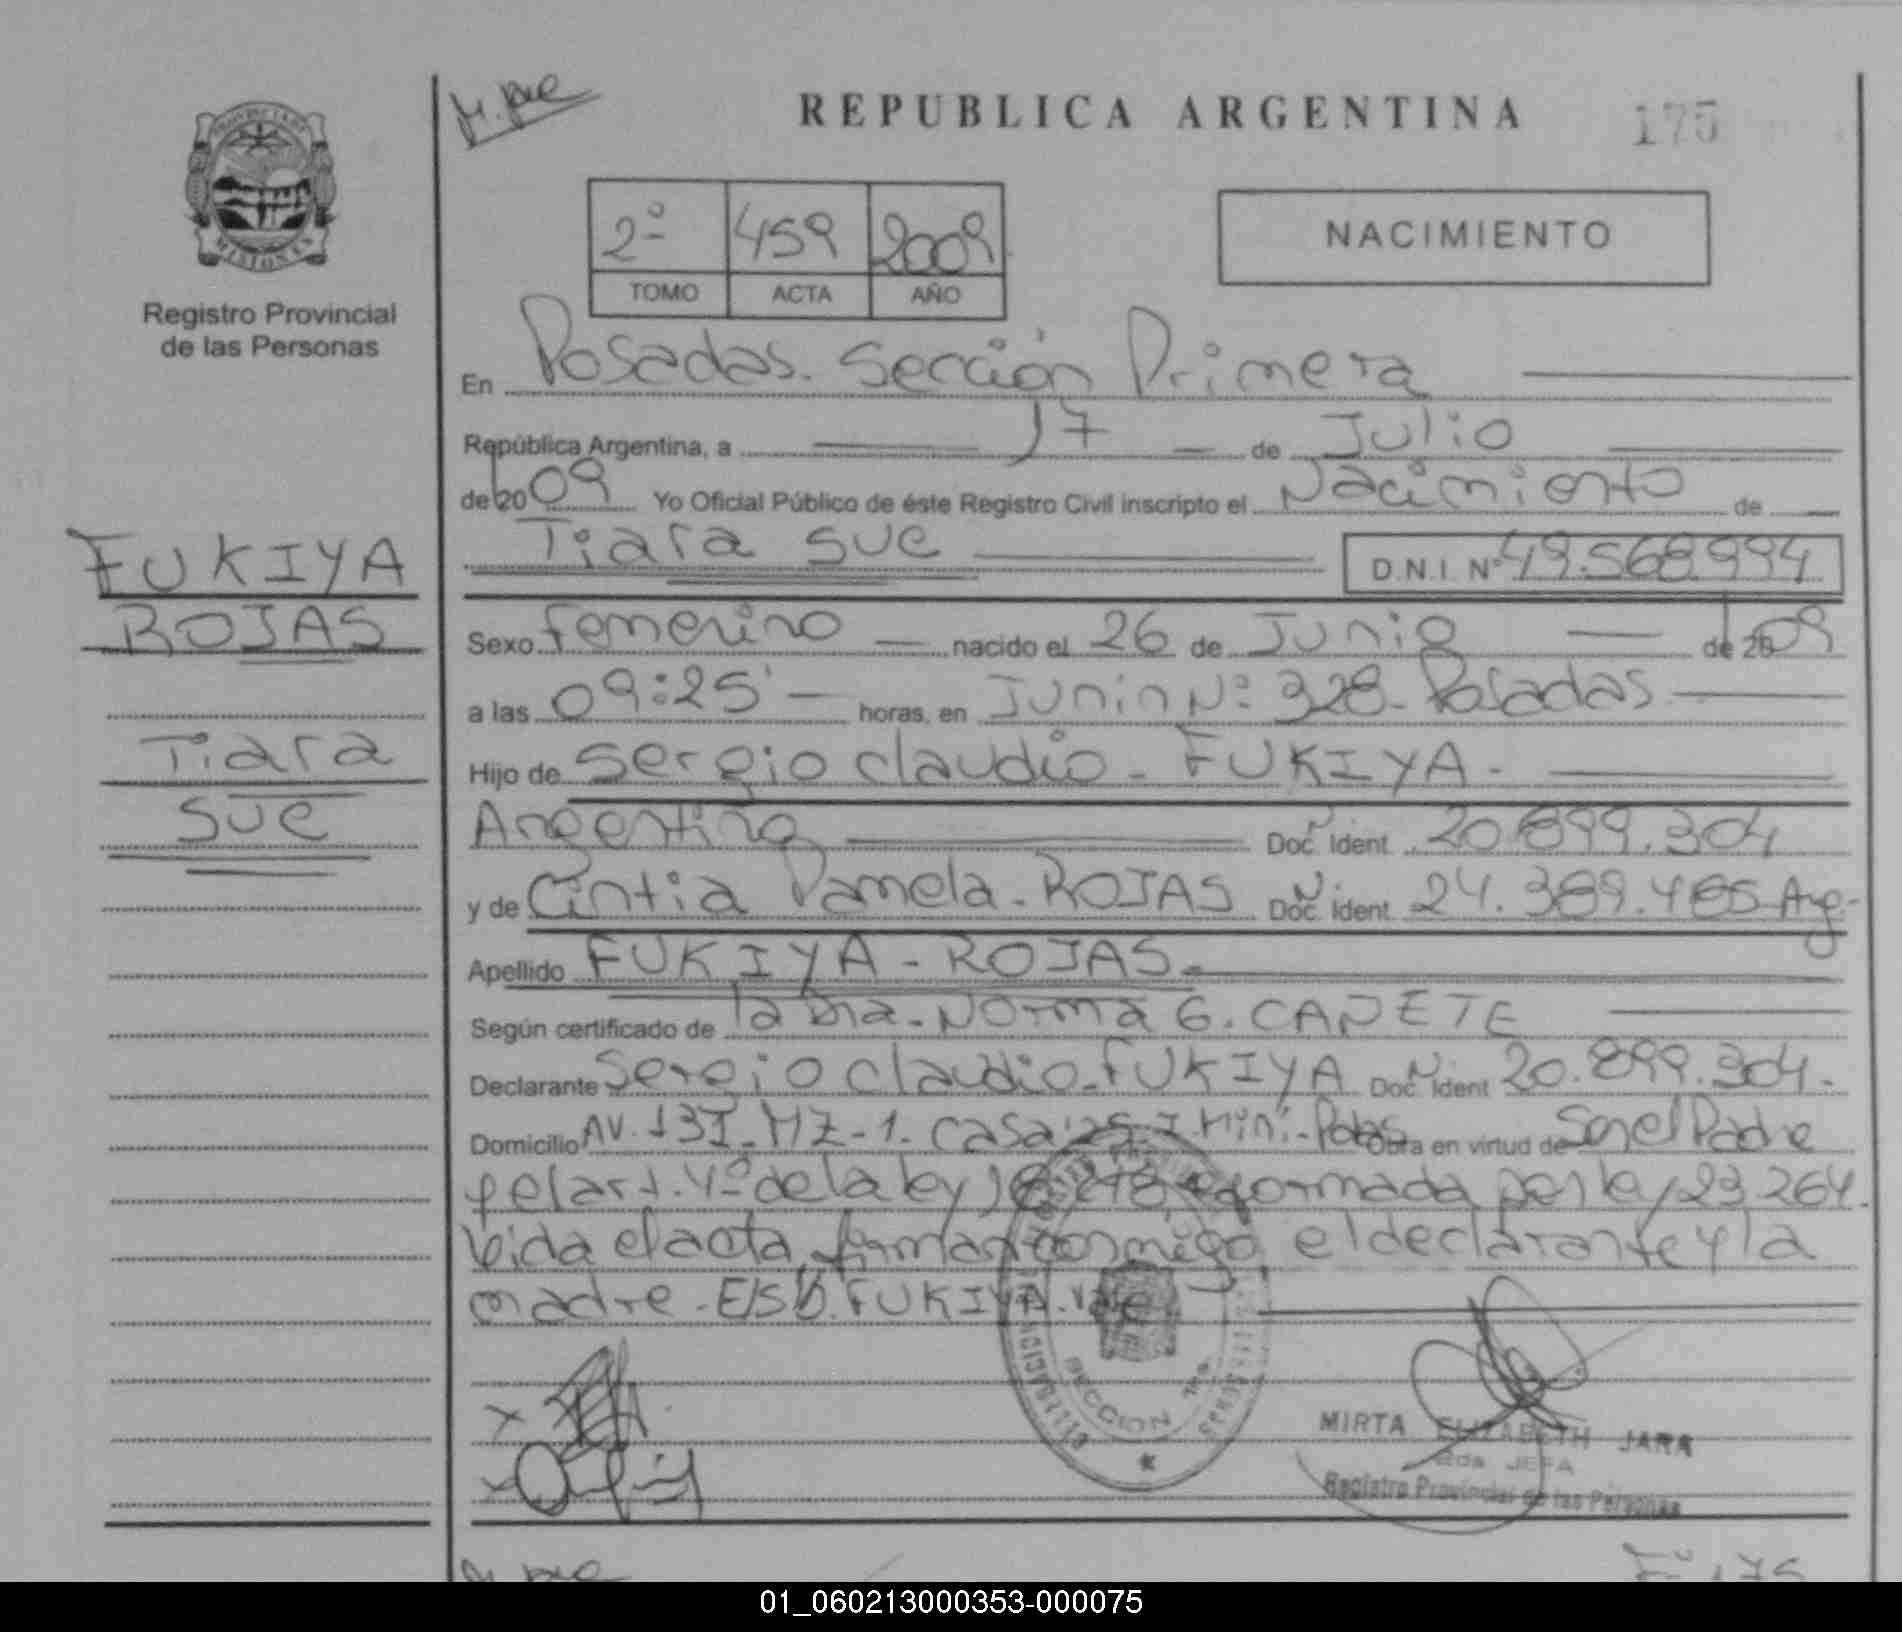 M. pre
REPUBLICA ARGENTINA
175
PROVINCIA DE
MISIONES
Registro Provincial
de las Personas
2º 459 2009
TOMO ACTA AÑO
NACIMIENTO
En Posadas. Sección Primera
República Argentina, a 17 de Julio
de 2009 Yo Oficial Público de éste Registro Civil inscripto el Nacimiento de
Tiara Sue D.N.I. Nº 49.568.994
FUKIYA
ROJAS
Tiara
Sue
Sexo Femenino nacido el 26 de Junio de 2009
a las 09:25' horas, en Junin Nº: 328. Posadas
Hijo de Sergio Claudio - FUKIYA -
Argentina Doc. Ident. 20.899.304
y de Cintia Pamela - ROJAS Doc. Ident. 24.389.485 Arg.
Apellido FUKIYA - ROJAS.
Según certificado de la Dra. Norma G. CAÑETE
Declarante Sergio Claudio - FUKIYA Doc. Ident. 20.899.304.
Domicilio AV. 131. MZ-1. Casa Obra en virtud de Ser el Padre
y el art. 4º de la ley 18.248 reformada por ley 23.264.
Leida el acta, firman conmigo el declarante y la
madre - E/S/b. FUKIYA. Vale
SECCION 1ra
MIRTA ELIZABETH JARA
2da JEFA
Registro Provincial de las Personas
Fº 175
01_060213000353-000075